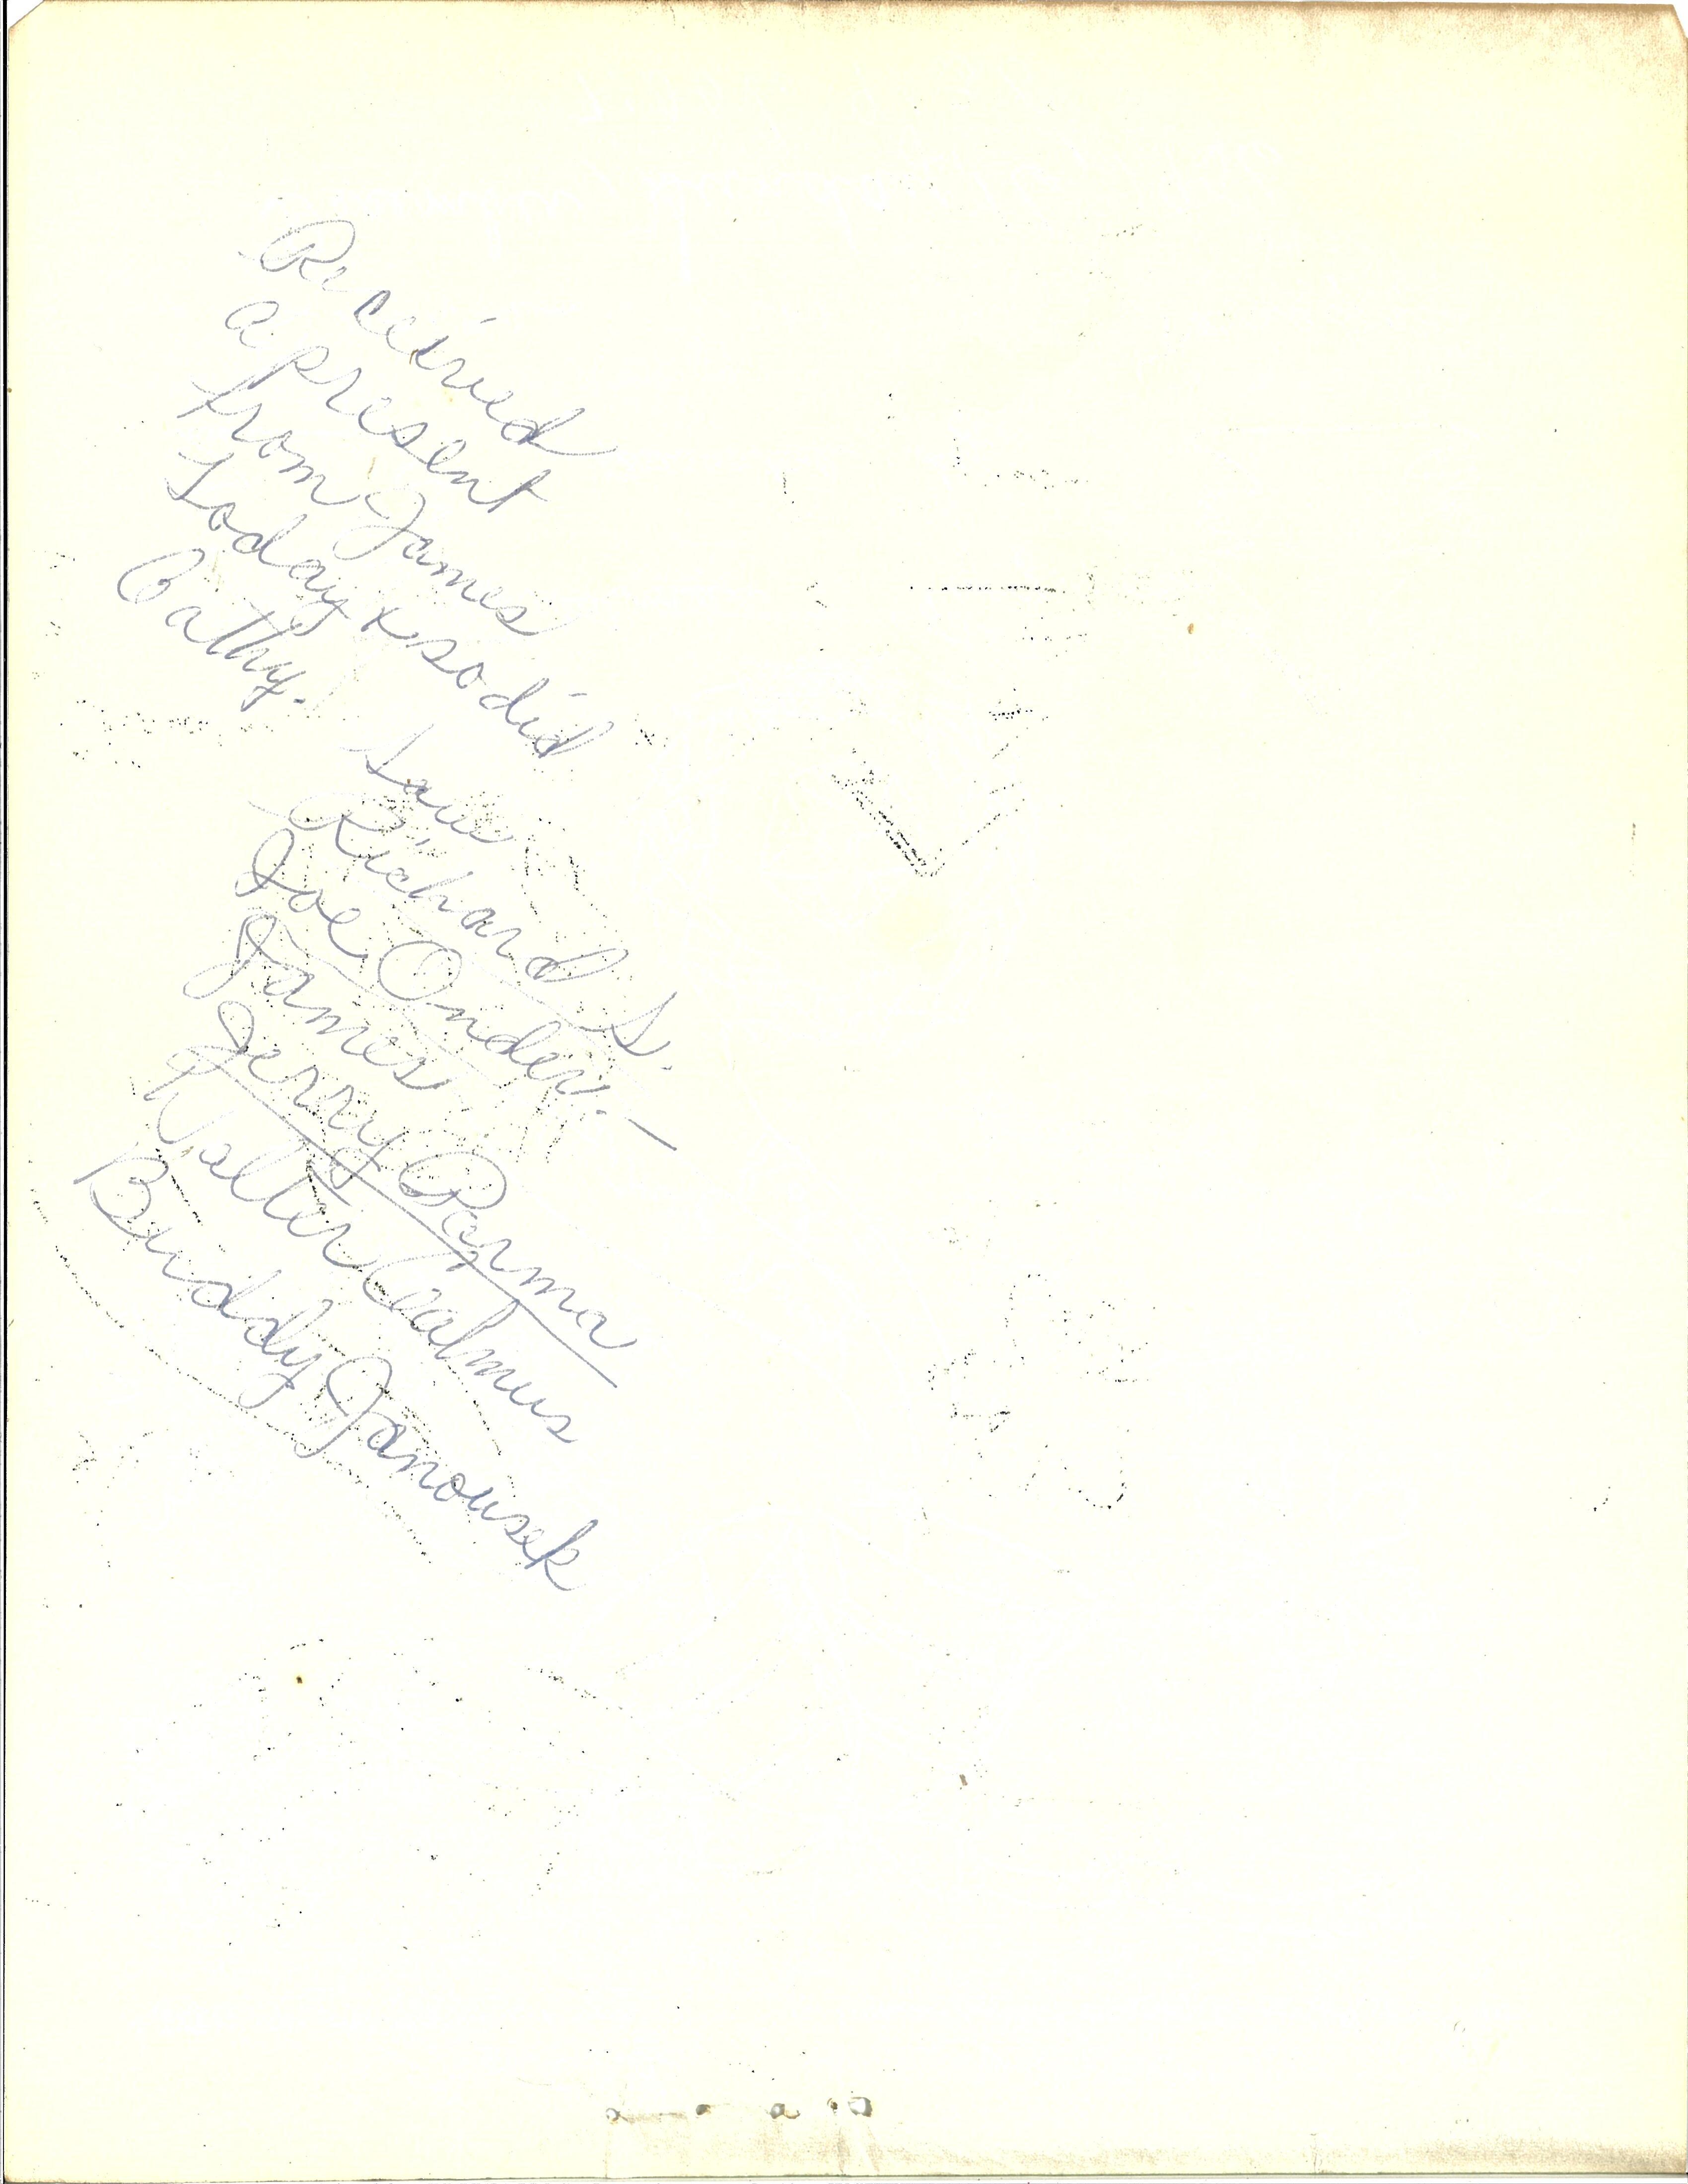 Received
a present
from James
today & so did
Cathy.
Saw
Richard S.
Joe Onder.
James
Jerry Parma
Walter Calmus
Buddy Janousek